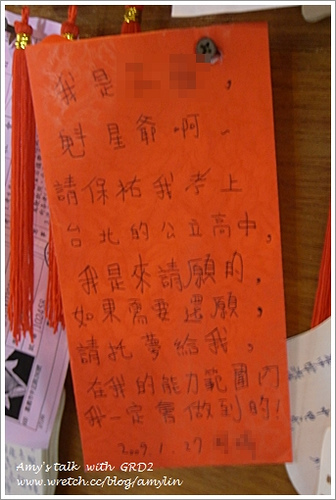 我是
魁星爺啊~
請保祐我考上
台北的公立高中，
我是來請願的，
如果需要還願，
請托夢給我，
在我的能力範圍內
我一定會做到的!
2009.1.27
Amy's talk with GRD2
www.wretch.cc/blog/amylin